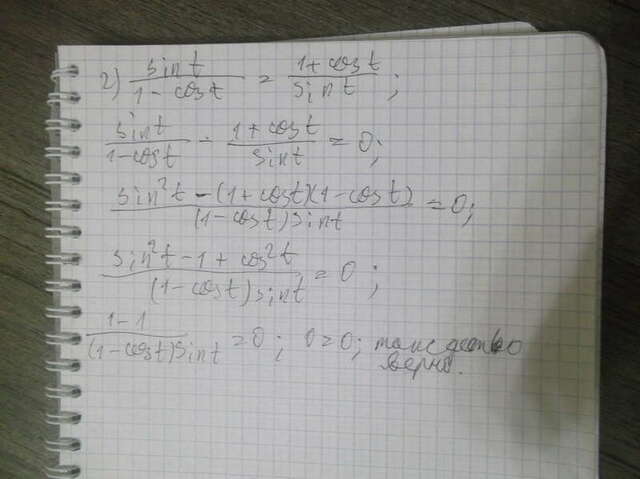 2) sin t / (1 - cos t) = (1 + cos t) / sin t ;
sin t / (1 - cos t) - (1 + cos t) / sin t = 0;
(sin²t - (1 + cos t)(1 - cos t)) / ((1 - cos t) sin t) = 0;
(sin²t - 1 + cos²t) / ((1 - cos t) sin t) = 0 ;
(1 - 1) / ((1 - cos t) sin t) = 0 ; 0 = 0; тождество
верно.